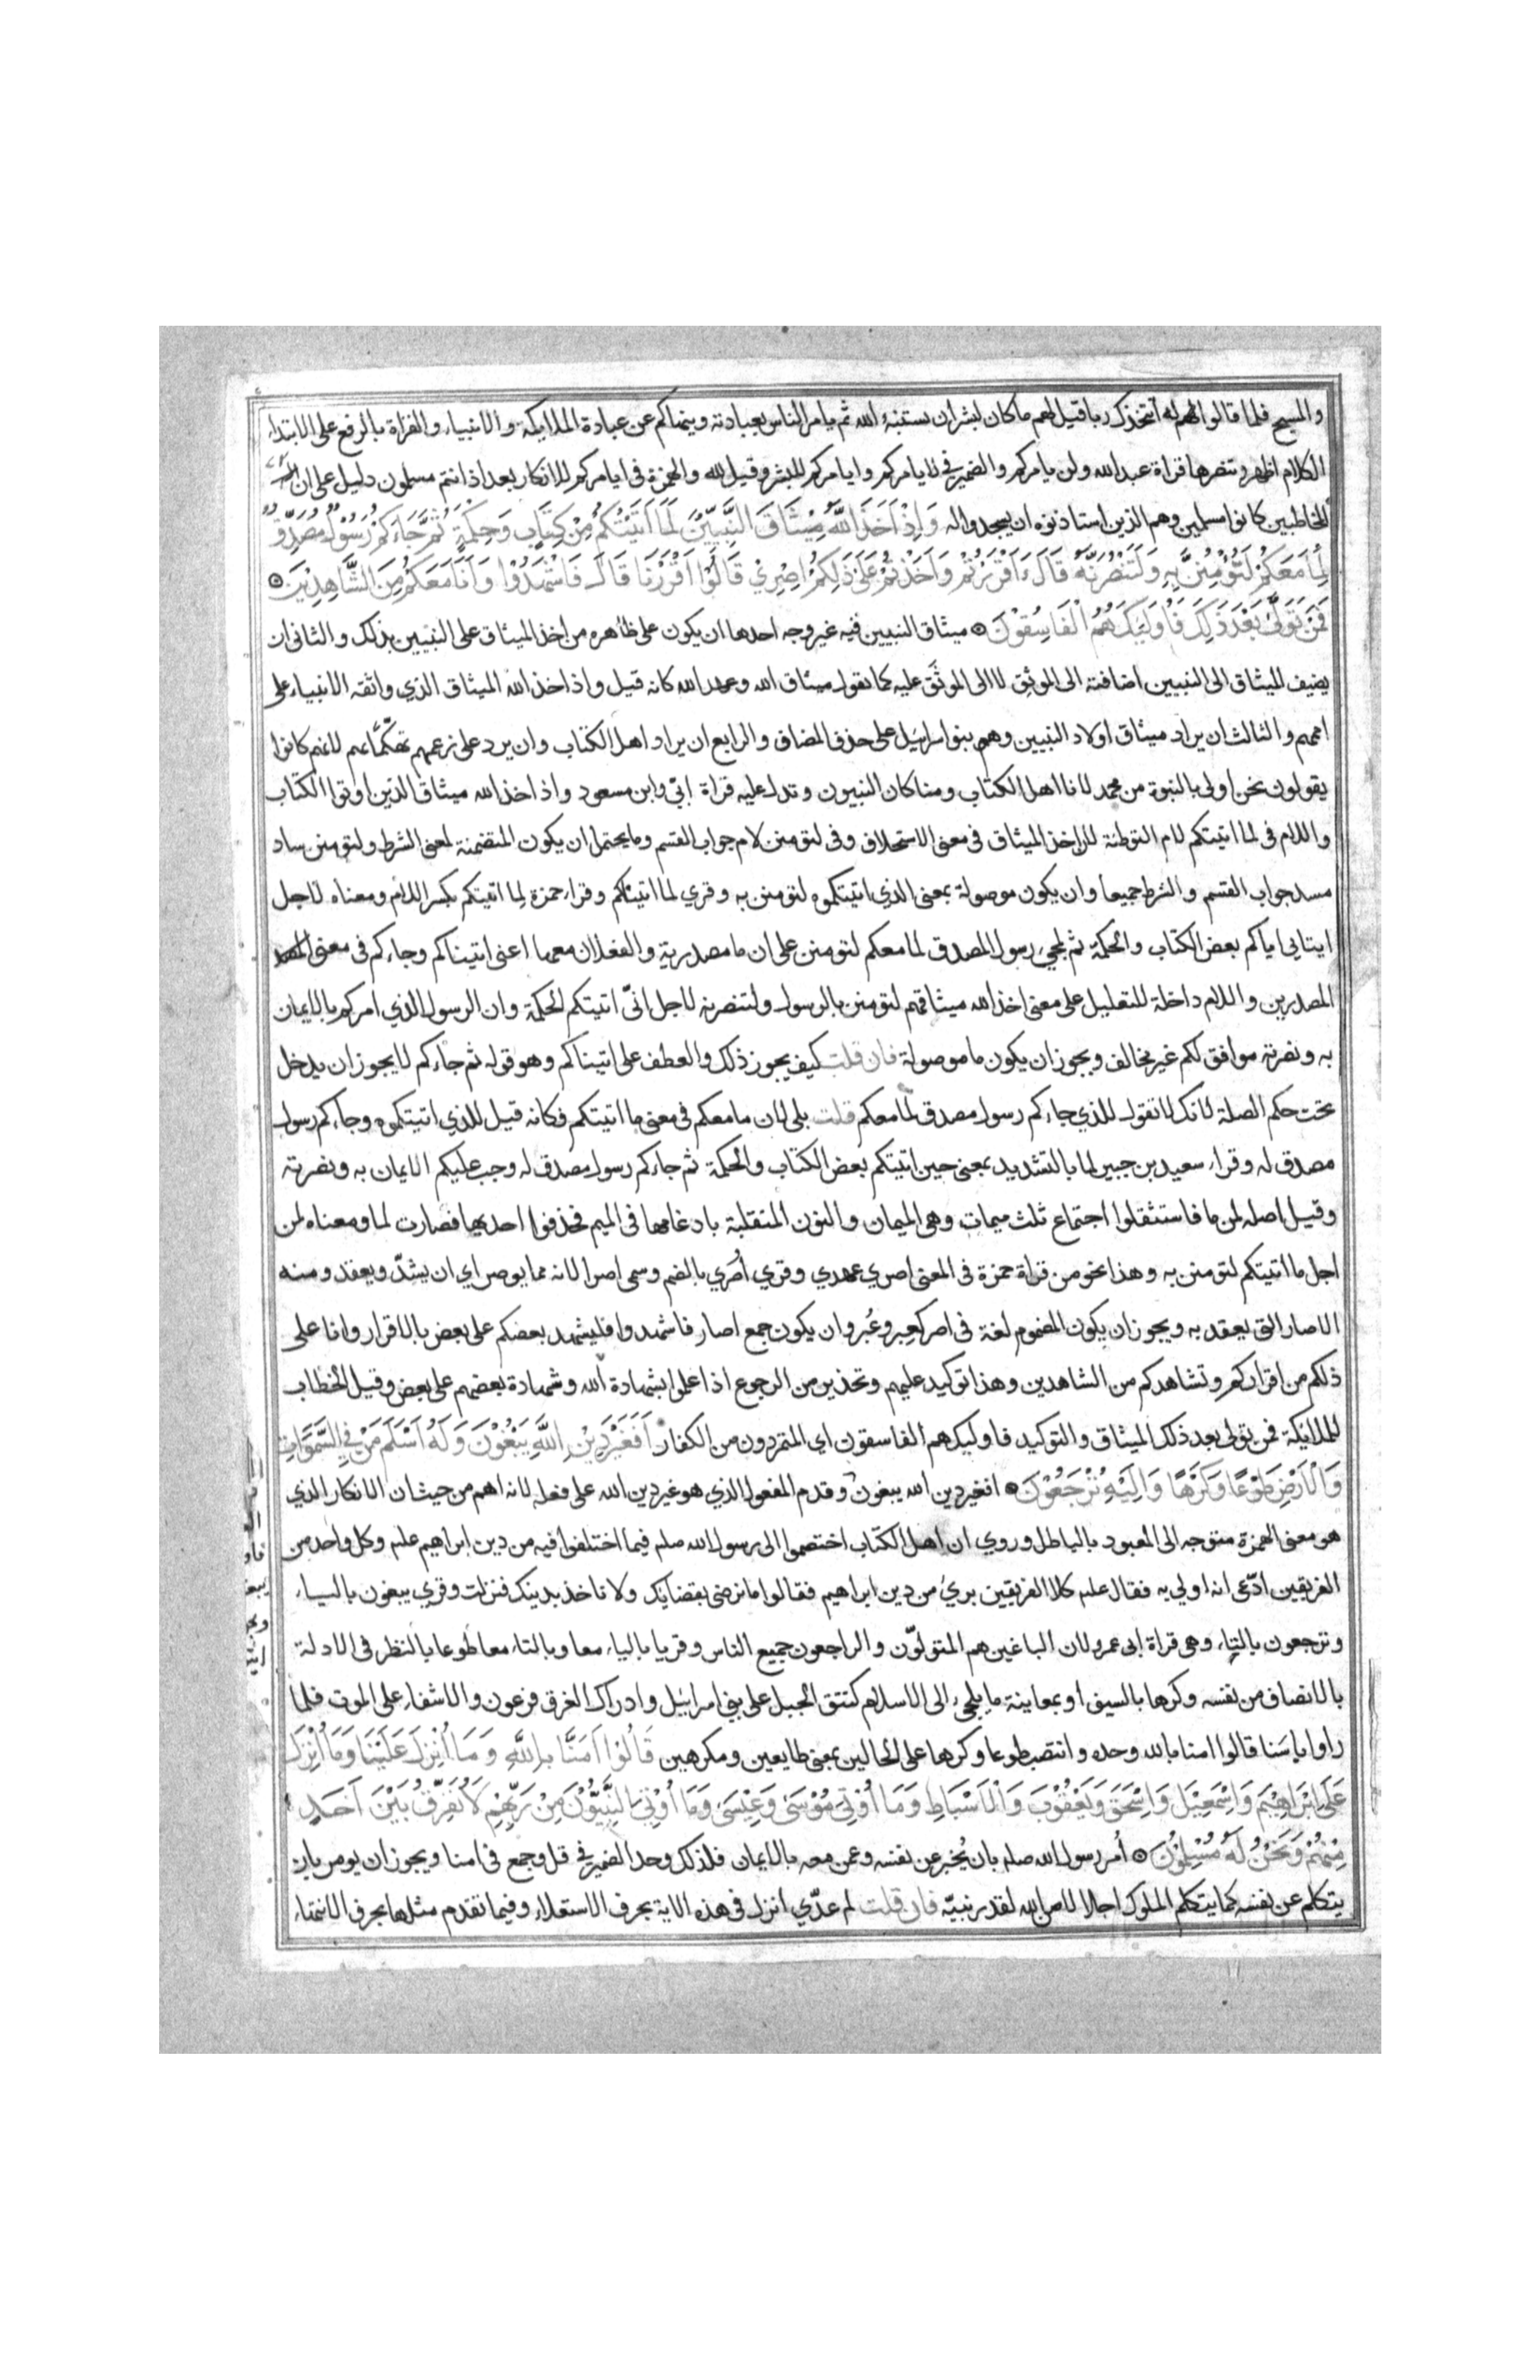 والمسيح فلما قالوا لهم له أنتخذك ربا قيل لهم ما كان لبشر ان يستنبئه الله ثم يامر الناس بعبادته وينهاكم عن عبادة الملايكة والانبياء والقراة بالرفع على الابتداء
الكلام اظهر وتنصرها قراة عبد الله ولن يامركم والضمير في لا يامركم وايامركم للبشر وقيل لله والهمزة في ايامركم للانكار بعد اذ انتم مسلمون دليل على ان
المخاطبين كانوا مسلمين وهم الذين استاذنوه ان يسجدوا له وَاِذْ اَخَذَ اللّٰهُ مِيْثَاقَ النَّبِيّٖنَ لَمَا اٰتَيْتُكُمْ مِنْ كِتَابٍ وَحِكْمَةٍ ثُمَّ جَاءَكُمْ رَسُوْلٌ مُصَدِّقٌ
لِمَا مَعَكُمْ لَتُؤْمِنُنَّ بِهٖ وَلَتَنْصُرُنَّهٗ قَالَ ءَاَقْرَرْتُمْ وَاَخَذْتُمْ عَلٰى ذٰلِكُمْ اِصْرِيْ قَالُوْا اَقْرَرْنَا قَالَ فَاشْهَدُوْا وَاَنَا مَعَكُمْ مِنَ الشَّاهِدِيْنَ ⊙
فَمَنْ تَوَلّٰى بَعْدَ ذٰلِكَ فَاُولٰئِكَ هُمُ الْفَاسِقُوْنَ ⊙ ميثاق النبيين فيه غير وجه احدها ان يكون على ظاهره من اخذ الميثاق على النبيين بذلك والثاني ان
يضيف الميثاق الى النبيين اضافته الى الموثِق لا الى الموثَق عليه كما تقول ميثاق الله وعهد الله كانه قيل واذ اخذ الله الميثاق الذي واثقه الانبياء على
اممهم والثالث ان يراد ميثاق اولاد النبيين وهم بنوا اسرائيل على حذف المضاف والرابع ان يراد اهل الكتاب وان يرد على زعمهم تهكّمًا بهم لانهم كانوا
يقولون نحن اولى بالنبوة من محمد لانا اهل الكتاب ومنا كان النبيون وتدل عليه قراة ابيّ وابن مسعود واذ اخذ الله ميثاق الذين اوتوا الكتاب
واللام في لما اتيتكم لام التوطئة لان اخذ الميثاق في معنى الاستحلاف وفي لتومنن لام جواب القسم وما يحتمل ان يكون المتضمنة لمعنى الشرط ولتومنن ساد
مسد جواب القسم والشرط جميعا وان يكون موصولة بمعنى الذي اتيتكموه لتومنن به وقري لما اتيناكم وقراء حمزة لِما اتيتكم بكسر اللام ومعناه لاجل
ايتايي اياكم بعض الكتاب والحكمة ثم لمجيء رسول مصدق لما معكم لتومنن على ان ما مصدرية والفعلان معها اعني اتيناكم وجاءكم في معنى
المصدرين واللام داخلة للتعليل على معنى اخذ الله ميثاقهم لتومنن بالرسول ولتنصرنه لاجل انّي اتيتكم الحكمة وان الرسول الذي امركم بالايمان
به ونصرته موافق لكم غير مخالف ويجوز ان يكون ما موصولة فان قلت كيف يجوز ذلك والعطف على اتيناكم وهو قوله ثم جاءكم لا يجوز ان يدخل
تحت حكم الصلة لانك لا تقول للذي جاءكم رسول مصدق لما معكم قلت بلى لان ما معكم في معنى ما اتيتكم فكانه قيل للذي اتيتكموه وجاءكم رسول
مصدق له وقراء سعيد بن جبير لما بالتشديد بمعنى حين اتيتكم بعض الكتاب والحكمة ثم جاءكم رسول مصدق له وجب عليكم الايمان به ونصرته
وقيل اصله لمن ما فاستثقلوا اجتماع ثلث ميمات وهي الميمان والنون المنقلبة بادغامها في الميم فحذفوا احديها فصارت لما ومعناه لمن
اجل ما اتيتكم لتومنن به وهذا نحو من قراة حمزة في المعنى اصري عهدي وقري اُصري بالضم وسمي اصرا لانه مما يوصر اي ان يشدّ ويعقد ومنه
الاصار التي يعقد به ويجوز ان يكون المضموم لغة في اصر كعِبر وعُبر وان يكون جمع اصار فاشهدوا فليشهد بعضكم على بعض بالاقرار وانا على
ذلكم من اقراركم وتشاهدكم من الشاهدين وهذا توكيد عليهم وتحذير من الرجوع اذا علموا بشهادة الله وشهادة بعضهم على بعض وقيل الخطاب
للملايكة فمن تولى بعد ذلك الميثاق والتوكيد فاوليك هم الفاسقون اي المتمردون من الكفار اَفَغَيْرَ دِيْنِ اللّٰهِ يَبْغُوْنَ وَلَهٗ اَسْلَمَ مَنْ فِي السَّمٰوَاتِ
وَالْاَرْضِ طَوْعًا وَكَرْهًا وَاِلَيْهِ تُرْجَعُوْنَ ⊙ افغير دين الله يبغون وقدم المفعول الذي هو غير دين الله على فعله لانه اهم من حيث ان الانكار الذي
هو معنى الهمزة متوجه الى المعبود بالباطل وروي ان اهل الكتاب اختصموا الى رسول الله صلم فيما اختلفوا فيه من دين ابراهيم علم وكل واحد من
الفريقين ادّعى انه اولي به فقال علم كلا الفريقين بريء من دين ابراهيم فقالوا ما نرضى بقضايك ولا ناخذ بدينك فنزلت وقري يبغون بالياء
وترجعون بالتاء وهي قراة ابي عمرو لان الباغين هم المتولّون والراجعون جميع الناس وقريا بالياء معا وبالتاء معا طوعا بالنظر في الادلة
بالانصاف من نفسه وكرها بالسيف او بمعاينة ما يلجيء الى الاسلام كنتق الجبل على بني اسرائيل وادراك الغرق فرعون والاشفاء على الموت فلما
راوا باسنا قالوا امنا بالله وحده وانتصب طوعا وكرها على الحالين بمعنى طايعين ومكرهين قَالُوْا اٰمَنَّا بِاللّٰهِ وَمَا اُنْزِلَ عَلَيْنَا وَمَا اُنْزِلَ
عَلٰى اِبْرَاهِيْمَ وَاِسْمٰعِيْلَ وَاِسْحٰقَ وَيَعْقُوْبَ وَالْاَسْبَاطِ وَمَا اُوْتِيَ مُوْسٰى وَعِيْسٰى وَمَا اُوْتِيَ النَّبِيُّوْنَ مِنْ رَبِّهِمْ لَا نُفَرِّقُ بَيْنَ اَحَدٍ
مِنْهُمْ وَنَحْنُ لَهٗ مُسْلِمُوْنَ ⊙ اُمر رسول الله صلم بان يُخبر عن نفسه وعمن معه بالايمان فلذلك وحد الضمير في قل وجمع في امنا ويجوز ان يومر بان
يتكلم عن نفسه كما يتكلم الملوك اجلالا من الله لقدر نبيّه فان قلت لم عدّي انزل في هذه الاية بحرف الاستعلاء وفيما تقدم مثلها بحرف الانتهاء